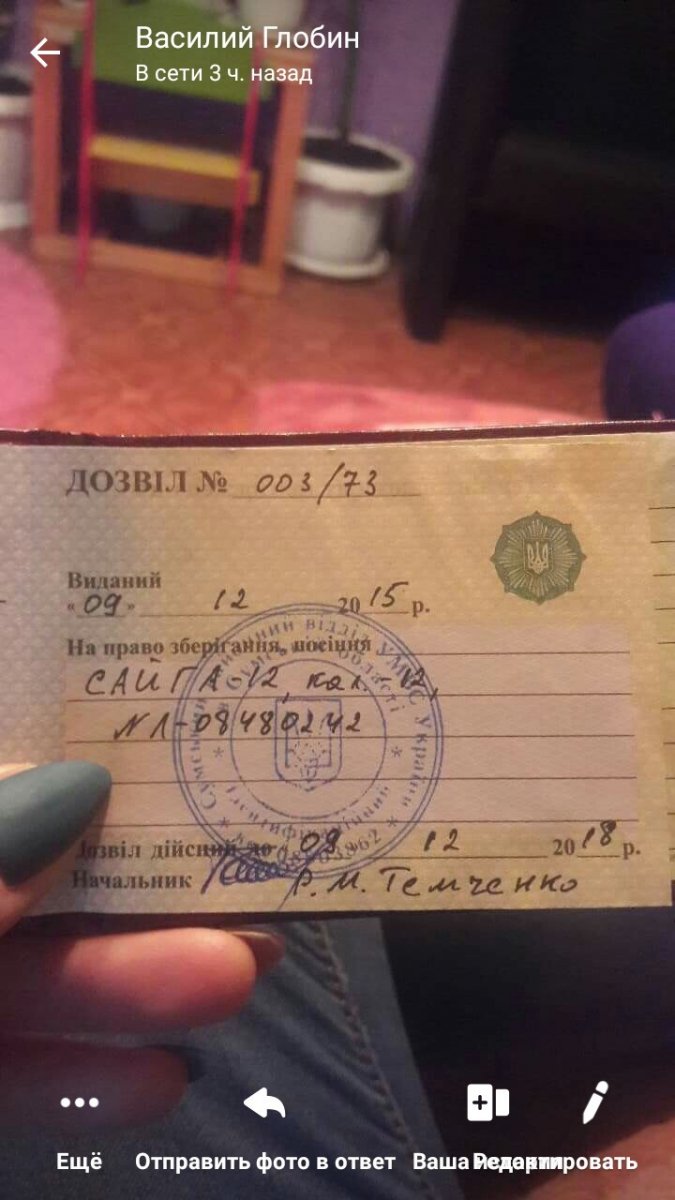 Василий Глобин
В сети 3 ч. назад
ДОЗВІЛ № 003/73
Виданий
"09" 12 2015 р.
На право зберігання, носіння
САЙГА-12, кал.-12,
№Л-08480242
Дозвіл дійсний до 09 12 2018 р.
Начальник Р.М. Темченко
УМВС України
області
Ещё
Отправить фото в ответ
Ваша история
Редактировать